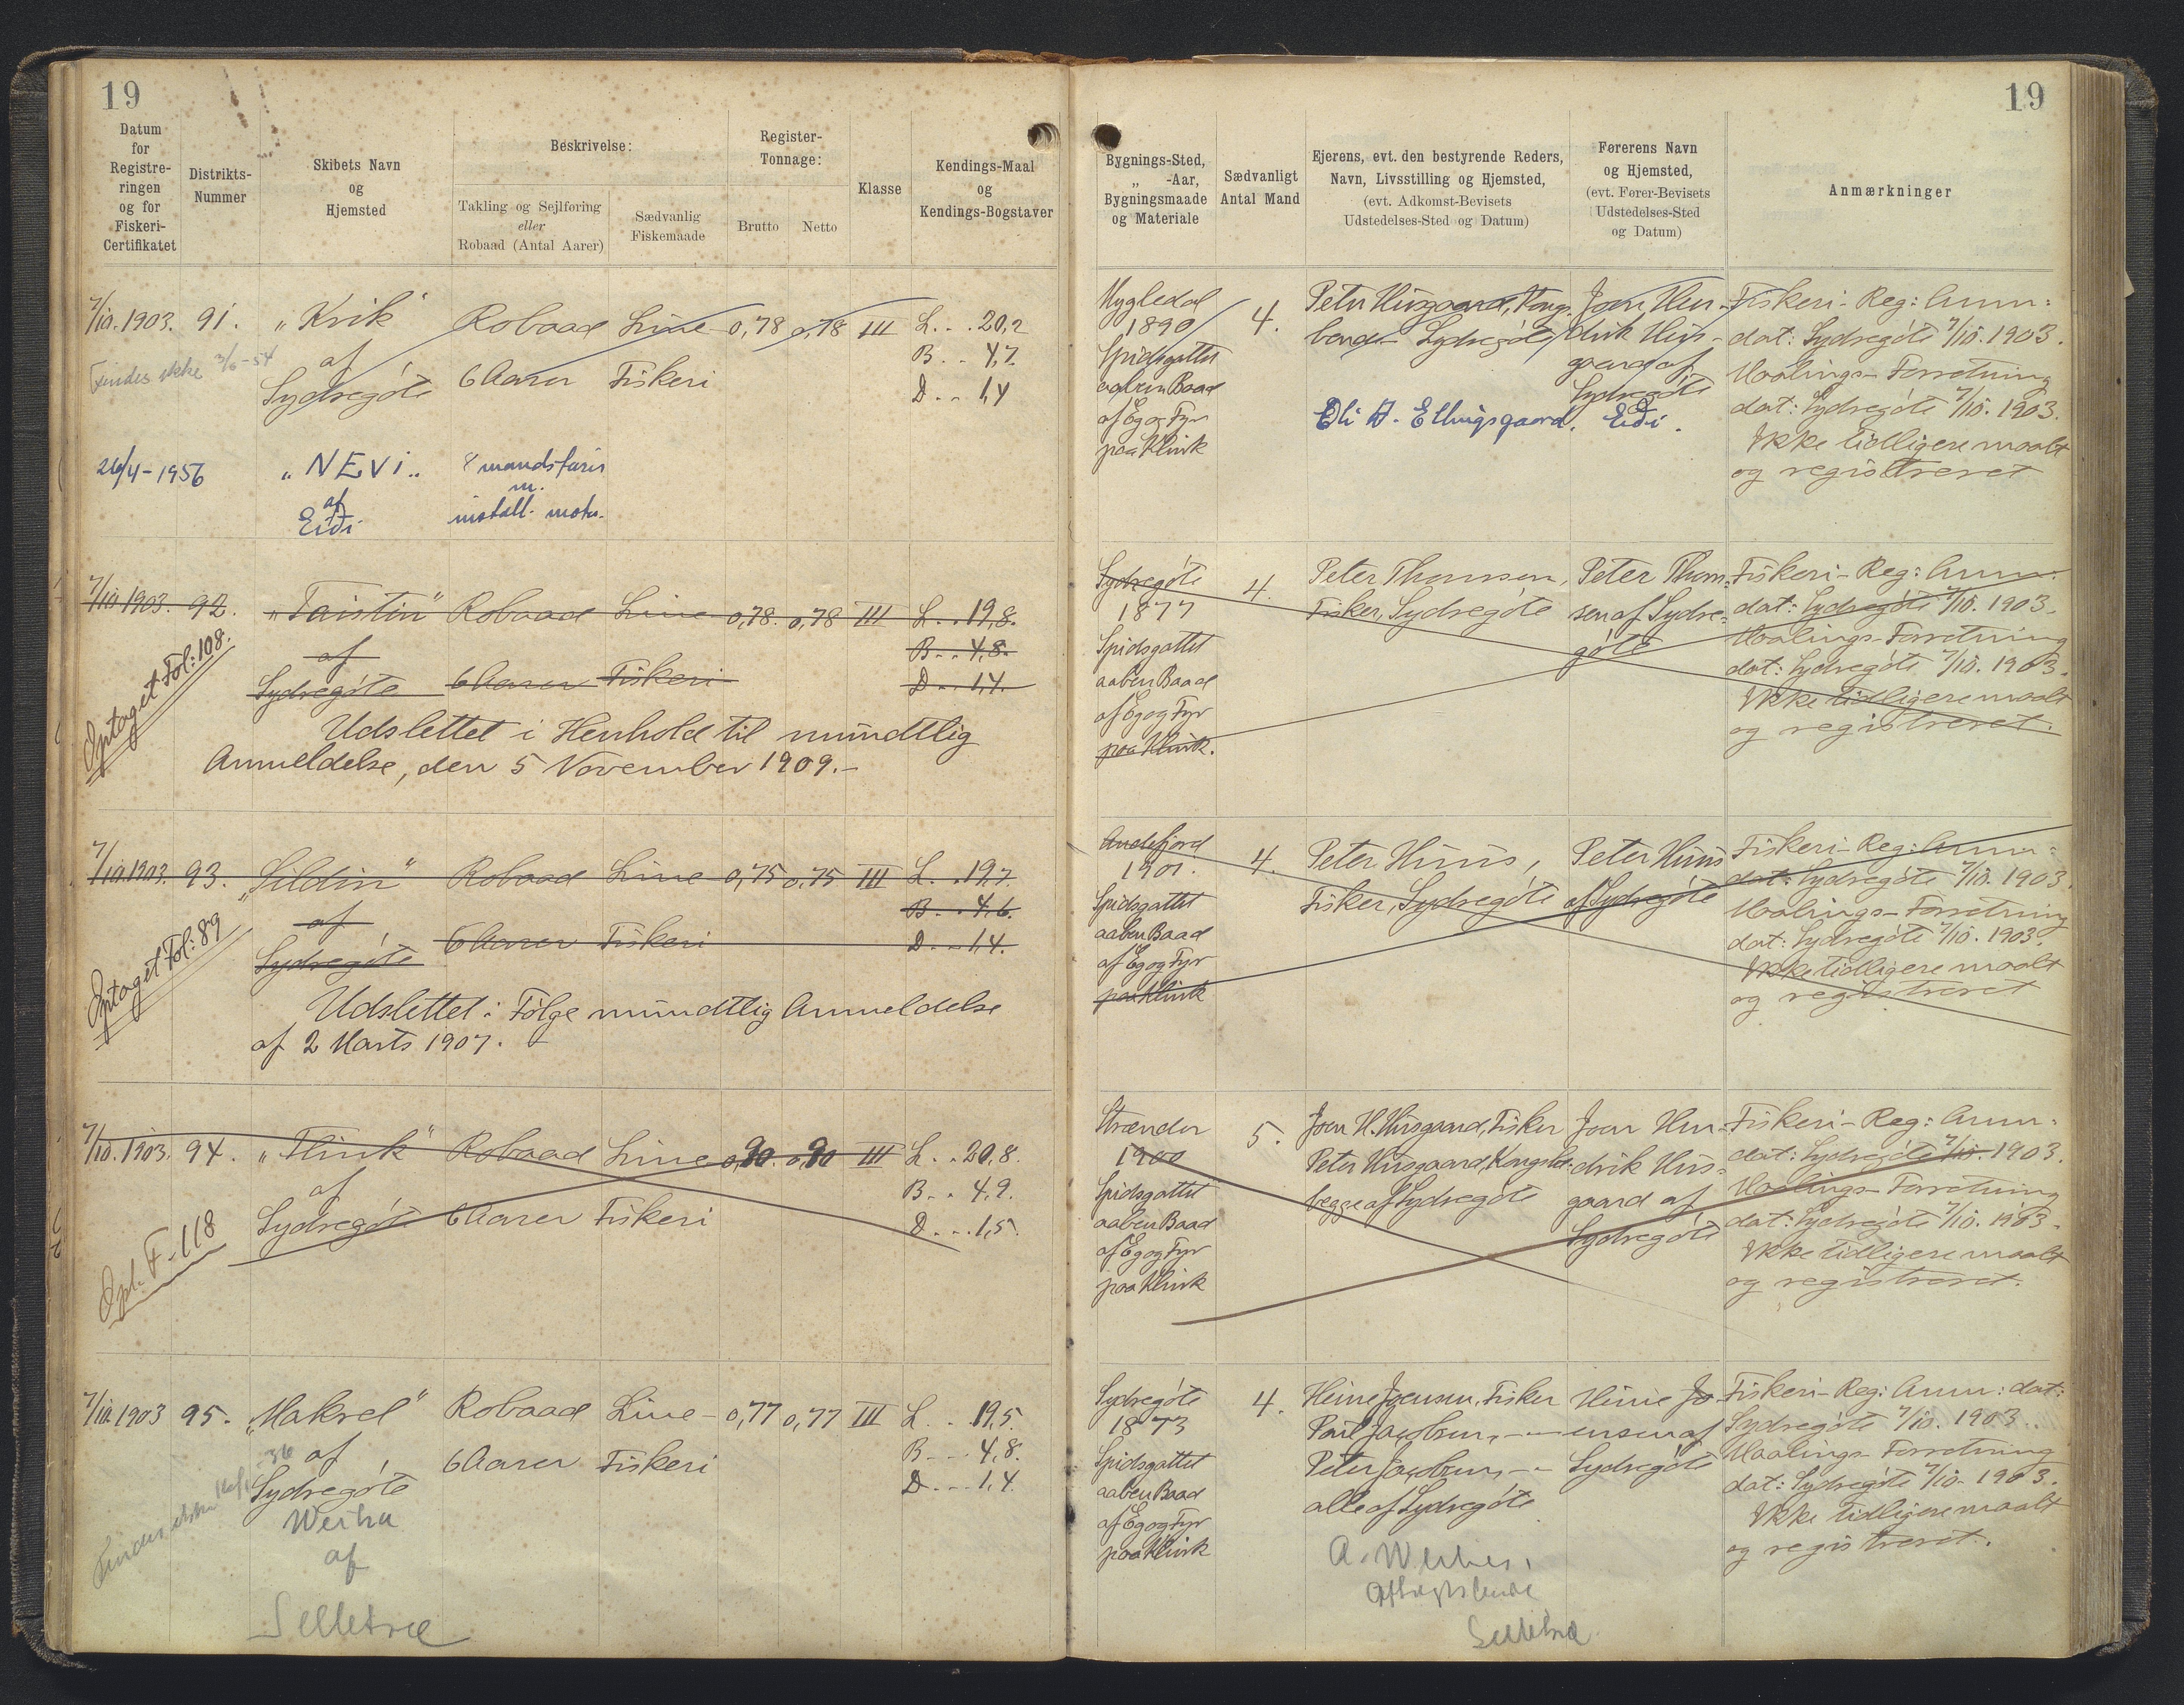 19
Datum
for
Registre-
ringen
og for
Fiskeri-
Certifikatet
Distrikts-
Nummer
Skibets Navn
og
Hjemsted
Beskrivelse:
Takling og Sejlføring
eller
Robaad (Antal Aarer)
Sædvanlig
Fiskemaade
Register-
Tonnage:
Brutto
Netto
Klasse
Kendings-Maal
og
Kendings-Bogstaver
7/10.1903. 91. "Krik" Robaad Line- 0,78 0,78 III L. . . 20,2
af B. . . 4,7
Findes ikke 3/6-54
Sydregøte 6 Aarer Fiskeri D. . . 1,4
26/4-1956 "NEVI" 8 mandsfarir
m.
af
Eiði install. motor.
7/10 1903. 92. "Taistin" Robaad Line 0,78. 0,78 III L. . . 19,8.
af B. . . 4,8.
Sydregøte 6 Aarer Fiskeri D. . . 1,4.
Optaget Fol: 108.
Udslettet i Henhold til mundtlig
Anmeldelse, den 5 November 1909.-
7/10.1903. 93. "Sildin" Robaad Line 0,75 0,75 III L. . . 19,7.
af B. . . 4,6.
Sydregøte 6 Aarer Fiskeri D. . . 1,4.
Optaget Fol: 89
Udslettet i Følge mundtlig Anmeldelse
af 2 Marts 1907.
7/10.1903. 94. "Flink" Robaad Line 0,80. 0,80 III L. . . 20,8.
af B. . . 4,9.
Sydregøte 6 Aarer Fiskeri D. . . 1,5.
Opt. F. 118
7/10.1903 95. "Makrel" Robaad Line- 0,77 0,77 III L. . . 19,5
af B. . . 4,8.
Sydregøte 6 Aarer Fiskeri D. . . 1,4.
36
af
Selletræ
19
Bygnings-Sted,
„ -Aar,
Bygningsmaade
og Materiale
Sædvanligt
Antal Mand
Ejerens, evt. den bestyrende Reders,
Navn, Livsstilling og Hjemsted,
(evt. Adkomst-Bevisets
Udstedelses-Sted og Datum)
Førerens Navn
og Hjemsted,
(evt. Fører-Bevisets
Udstedelses-Sted
og Datum)
Anmærkninger
Mygledal
1890
Spidsgattet
aaben Baad
af Eg og Fyr
paa Klink
4.
Peter Husgaard, Kongs-
bonde- Sydregøte
Eli D. Ellingsgaard. Eiði.
Joen Hen-
drik Hus-
gaard af
Sydregøte
Fiskeri-Reg: Anm:
dat: Sydregøte 7/10. 1903.
Maalings-Forretning
dat: Sydregøte 7/10. 1903.
Ikke tidligere maalt
og registreret
Sydregøte
1877
Spidsgattet
aaben Baad
af Eg og Fyr
paa Klink.
4.
Peter Thomsen,
Fisker, Sydregøte
Peter Thom-
sen af Sydre-
gøte
Fiskeri-Reg: Anm:
dat: Sydregøte 7/10. 1903.
Maalings-Forretning
dat: Sydregøte 7/10. 1903.
Ikke tidligere maalt
og registreret.
Andefjord
1901.
Spidsgattet
aaben Baad
af Eg og Fyr
paa Klink
4.
Peter Huus,
Fisker, Sydregøte
Peter Huus
af Sydregøte
Fiskeri-Reg: Anm:
dat: Sydregøte 7/10. 1903.
Maalings-Forretning
dat: Sydregøte 7/10. 1903.
Ikke tidligere maalt
og registreret
Strænder
1900
Spidsgattet
aaben Baad
af Eg og Fyr
paa Klink
5.
Joen H. Husgaard, Fisker
Peter Husgaard, Kongsb:
begge af Sydregøte
Joen Hen-
drik Hus-
gaard af
Sydregøte
Fiskeri-Reg: Anm:
dat: Sydregøte 7/10. 1903.
Maalings-Forretning
dat: Sydregøte 7/10. 1903.
Ikke tidligere maalt
og registreret.
Sydregøte
1873
Spidsgattet
aaben Baad
af Eg og Fyr
paa Klink
4.
Heine Joensen, Fisker
Poul Jacobsen, - -
Peter Jacobsen, - -
alle af Sydregøte
A.
Selletræ
Heine Jo-
ensen af
Sydregøte
Fiskeri-Reg: Anm: dat:
Sydregøte 7/10. 1903.
Maalings-Forretning
dat: Sydregøte 7/10. 1903.
Ikke tidligere maalt
og registreret.